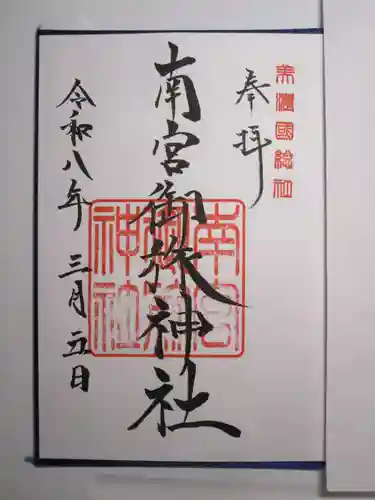 美濃國総社
奉拝
南宮御旅神社
南宮御旅神社
令和八年三月五日